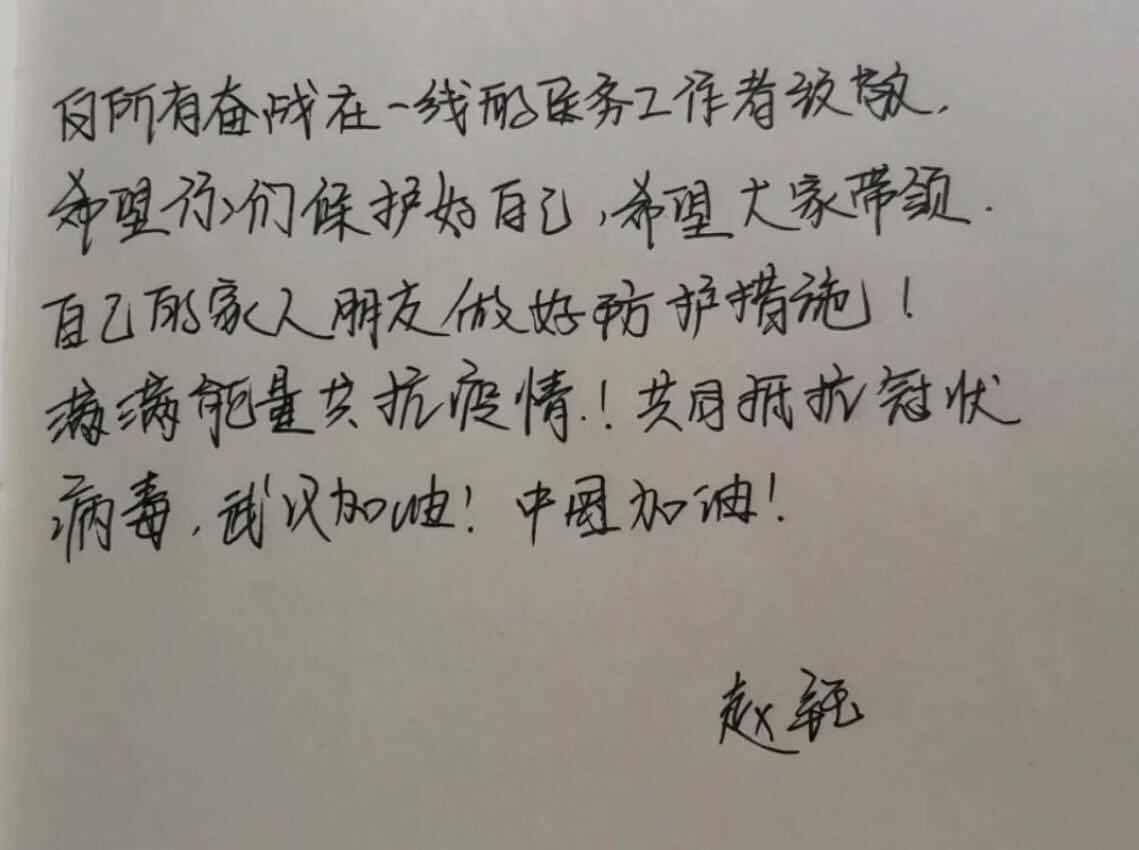 向所有奋战在一线的医务工作者致敬,
希望你们保护好自己,希望大家带领.
自己的家人朋友做好防护措施!
满满能量共抗疫情.!共同抵抗冠状
病毒,武汉加油!中国加油!
赵